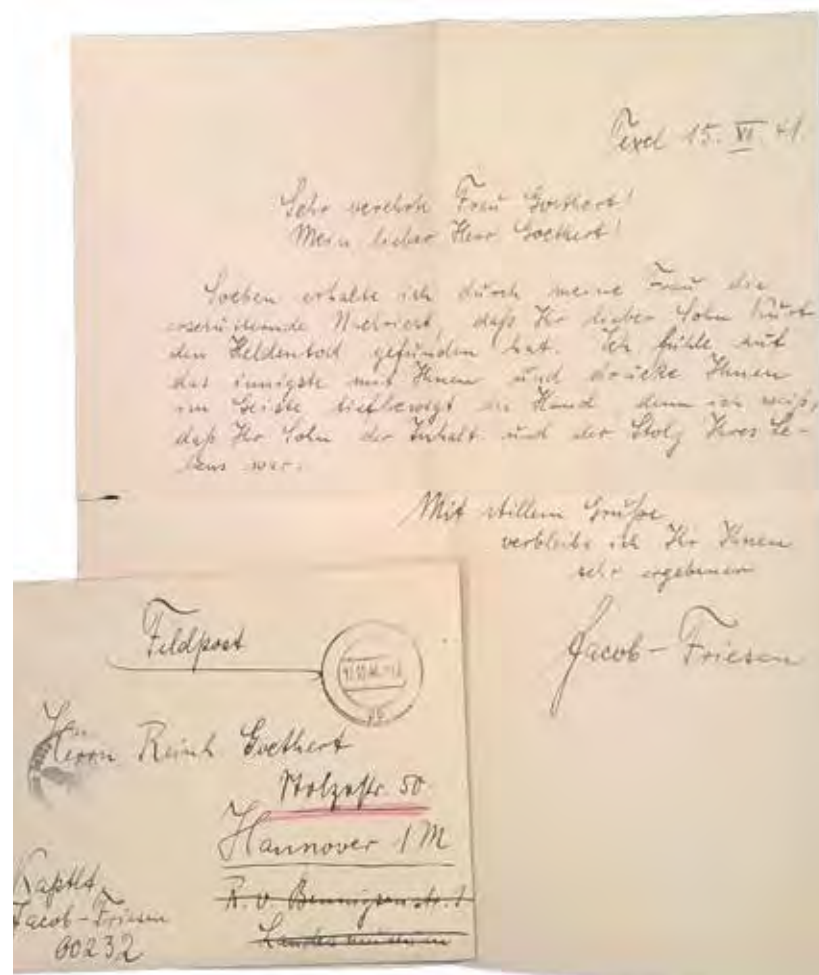 Texel 15. VI. 41.
Sehr verehrte Frau Goethert!
Mein lieber Herr Goethert!
Soeben erhalte ich durch meine Frau die
erschütternde Nachricht, daß Ihr lieber Sohn Kurt
den Heldentod gefunden hat. Ich fühle auf
das innigste mit Ihnen und drücke Ihnen
im Geiste tiefbewegt die Hand, denn ich weiß,
daß Ihr Sohn der Inhalt und der Stolz Ihres Le-
bens war.
Mit stillem Gruße
verbleibe ich Ihr Ihnen
sehr ergebener
Jacob-Friesen
Feldpost
Herrn Reinh. Goethert
Stolzestr. 50
Hannover 1 M
R. v. Bennigsenstr. 1
Landesmuseum
Kaptlt.
Jacob-Friesen
00232